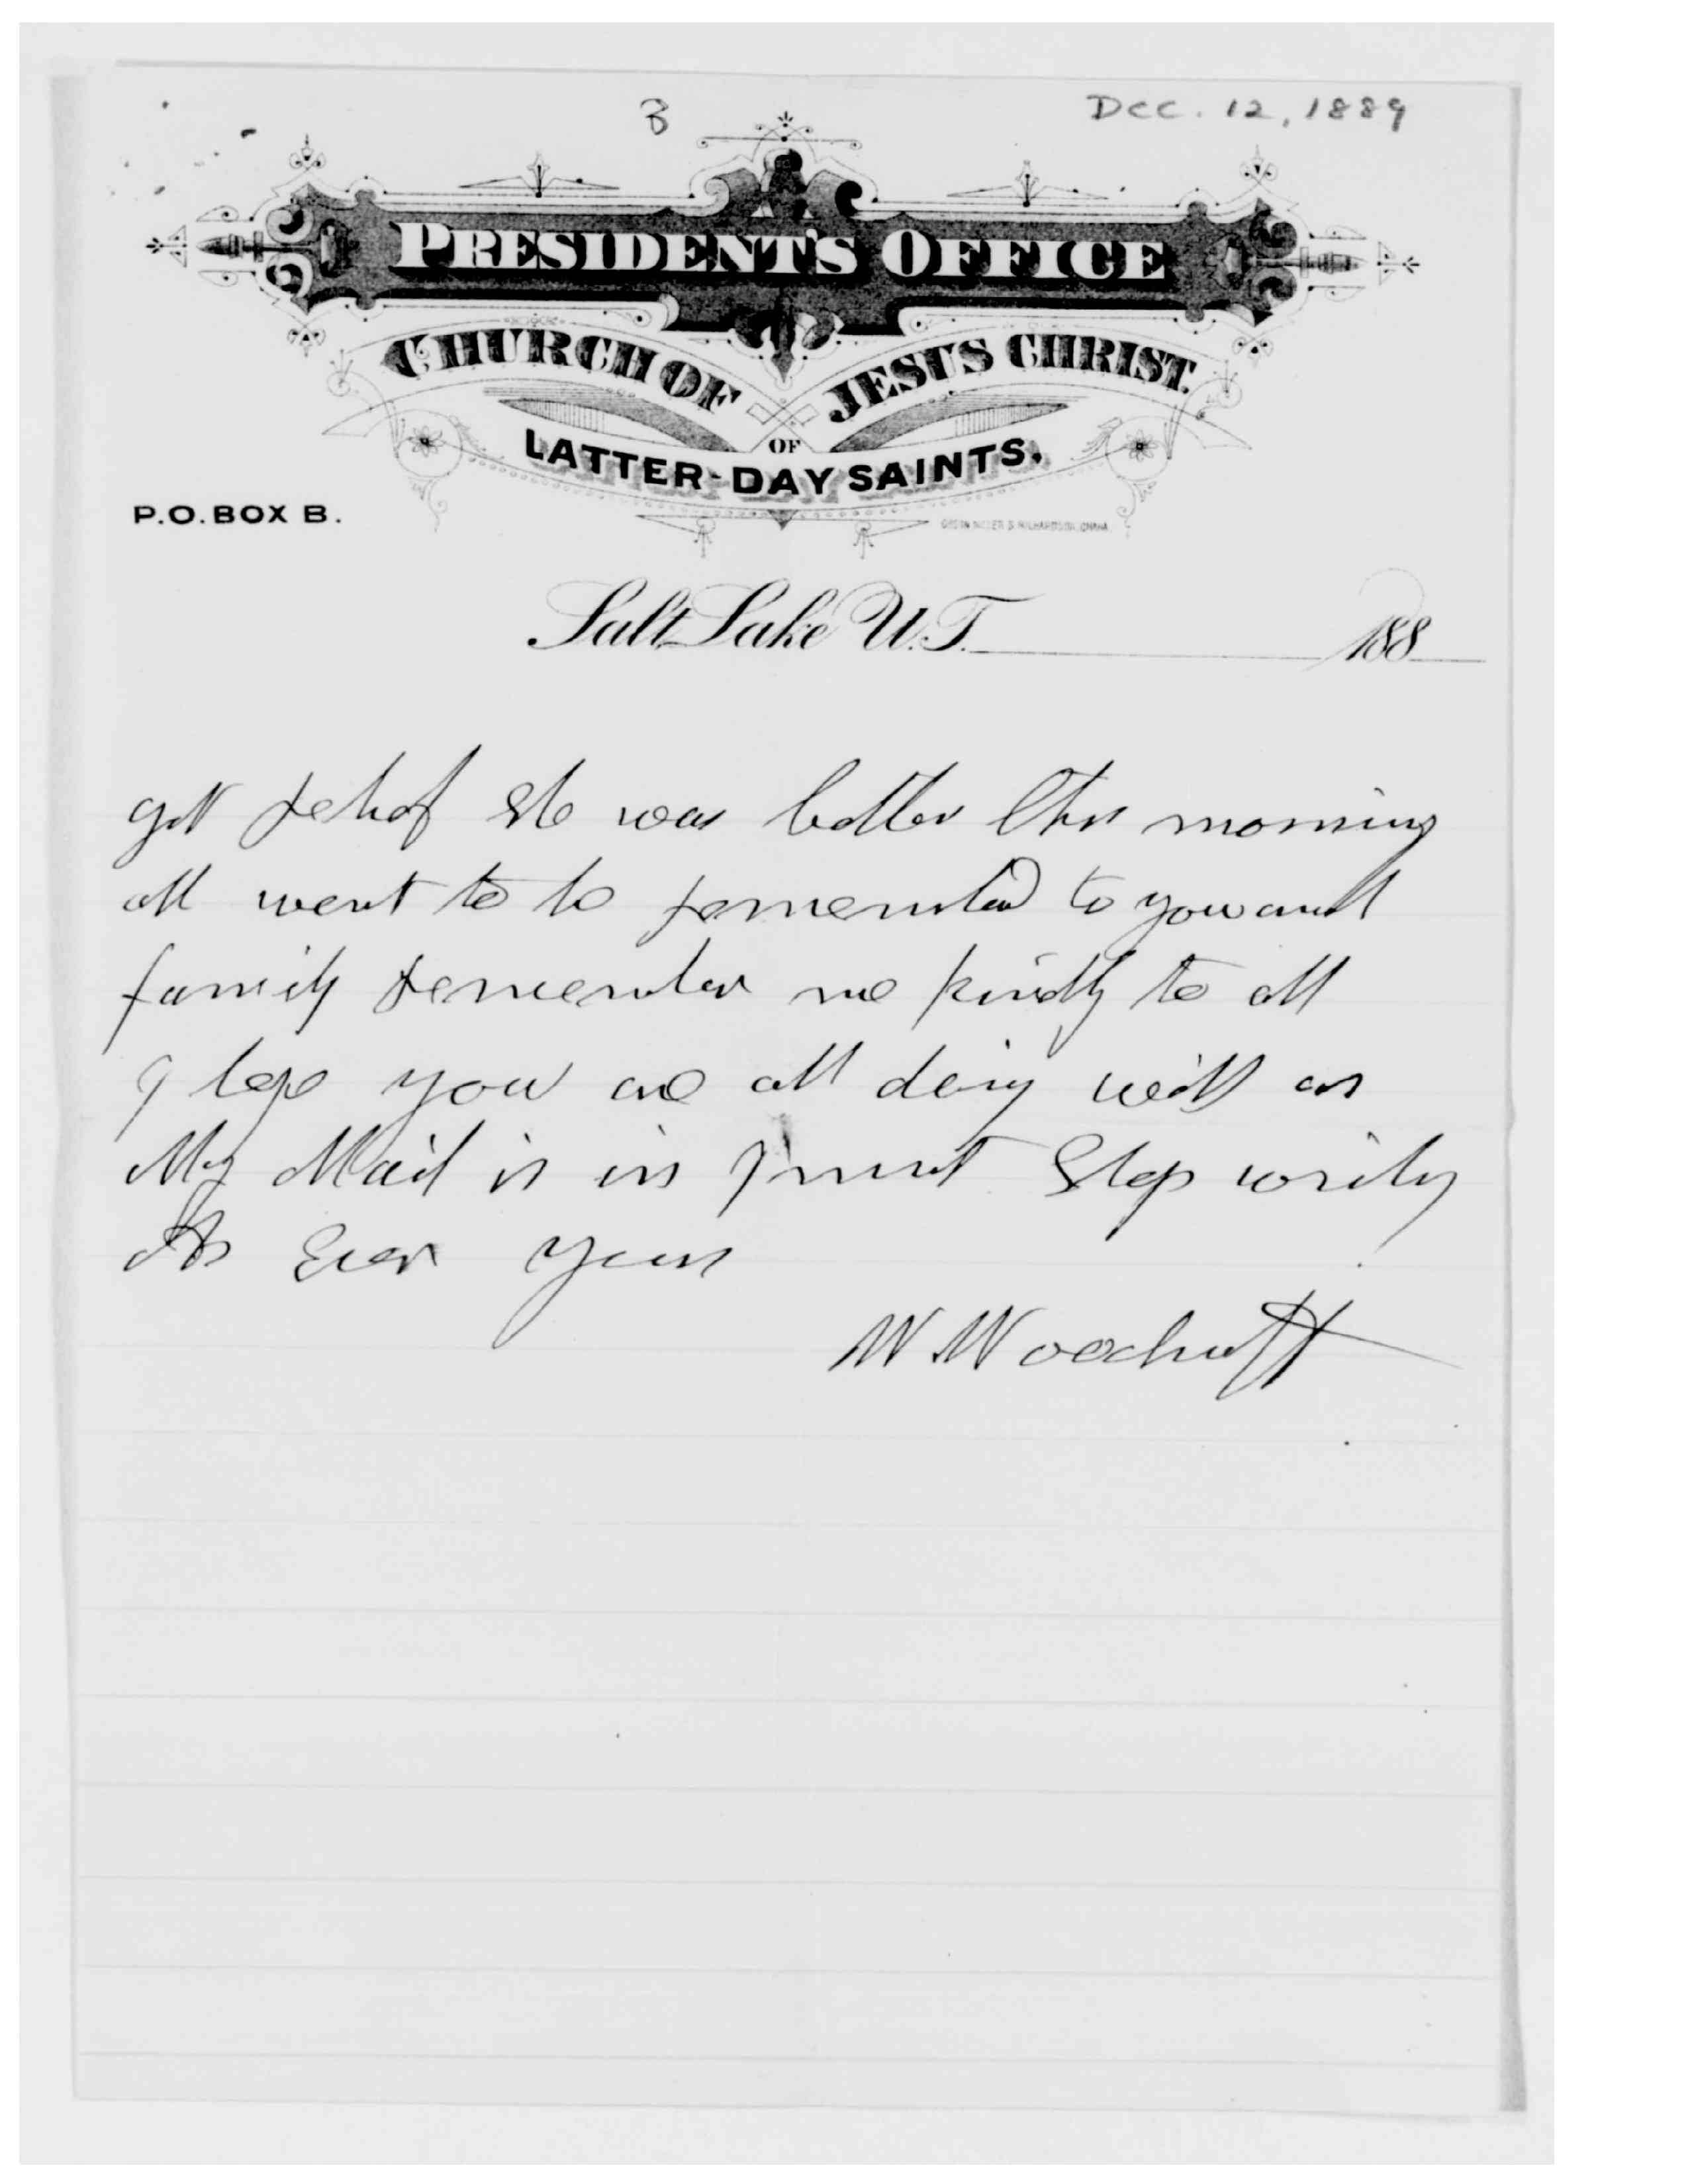 3
Dec. 12, 1889
PRESIDENT'S OFFICE
CHURCH OF JESUS CHRIST.
OF
LATTER-DAY SAINTS.
P.O. BOX B.
Salt Lake U.T. 188
got relief she was better this morning
all want to be remembered to you and
family remember me kindly to all
I hope you are all doing well as
My Mail is in I must stop writing
As Ever yours
W Woodruff